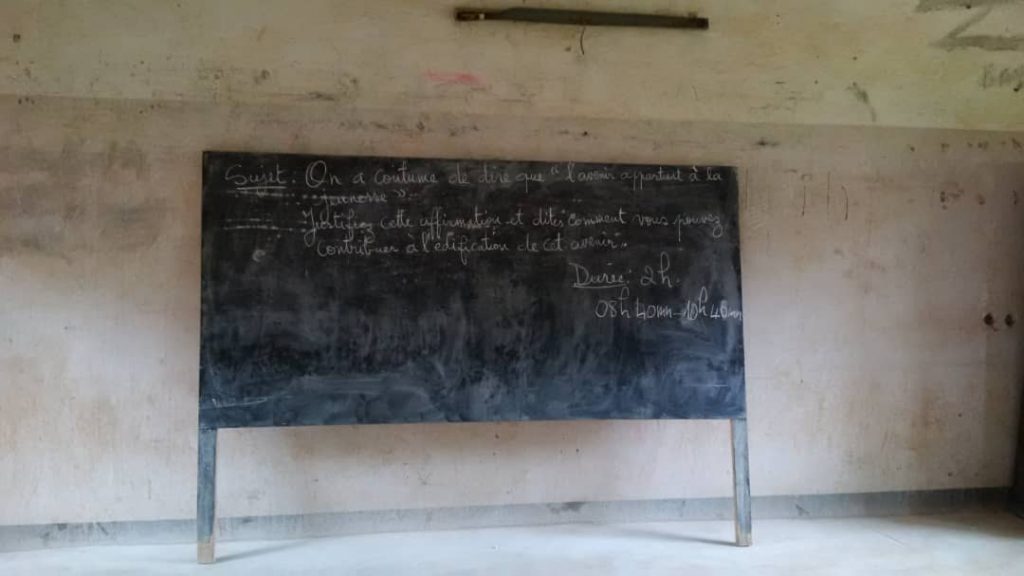 Sujet : On a coutume de dire que "l'avenir appartient à la
jeunesse".
Justifiez cette affirmation et dites comment vous pouvez
contribuer à l'édification de cet avenir.
Durée : 2h.
08h 40mn - 10h 40mn